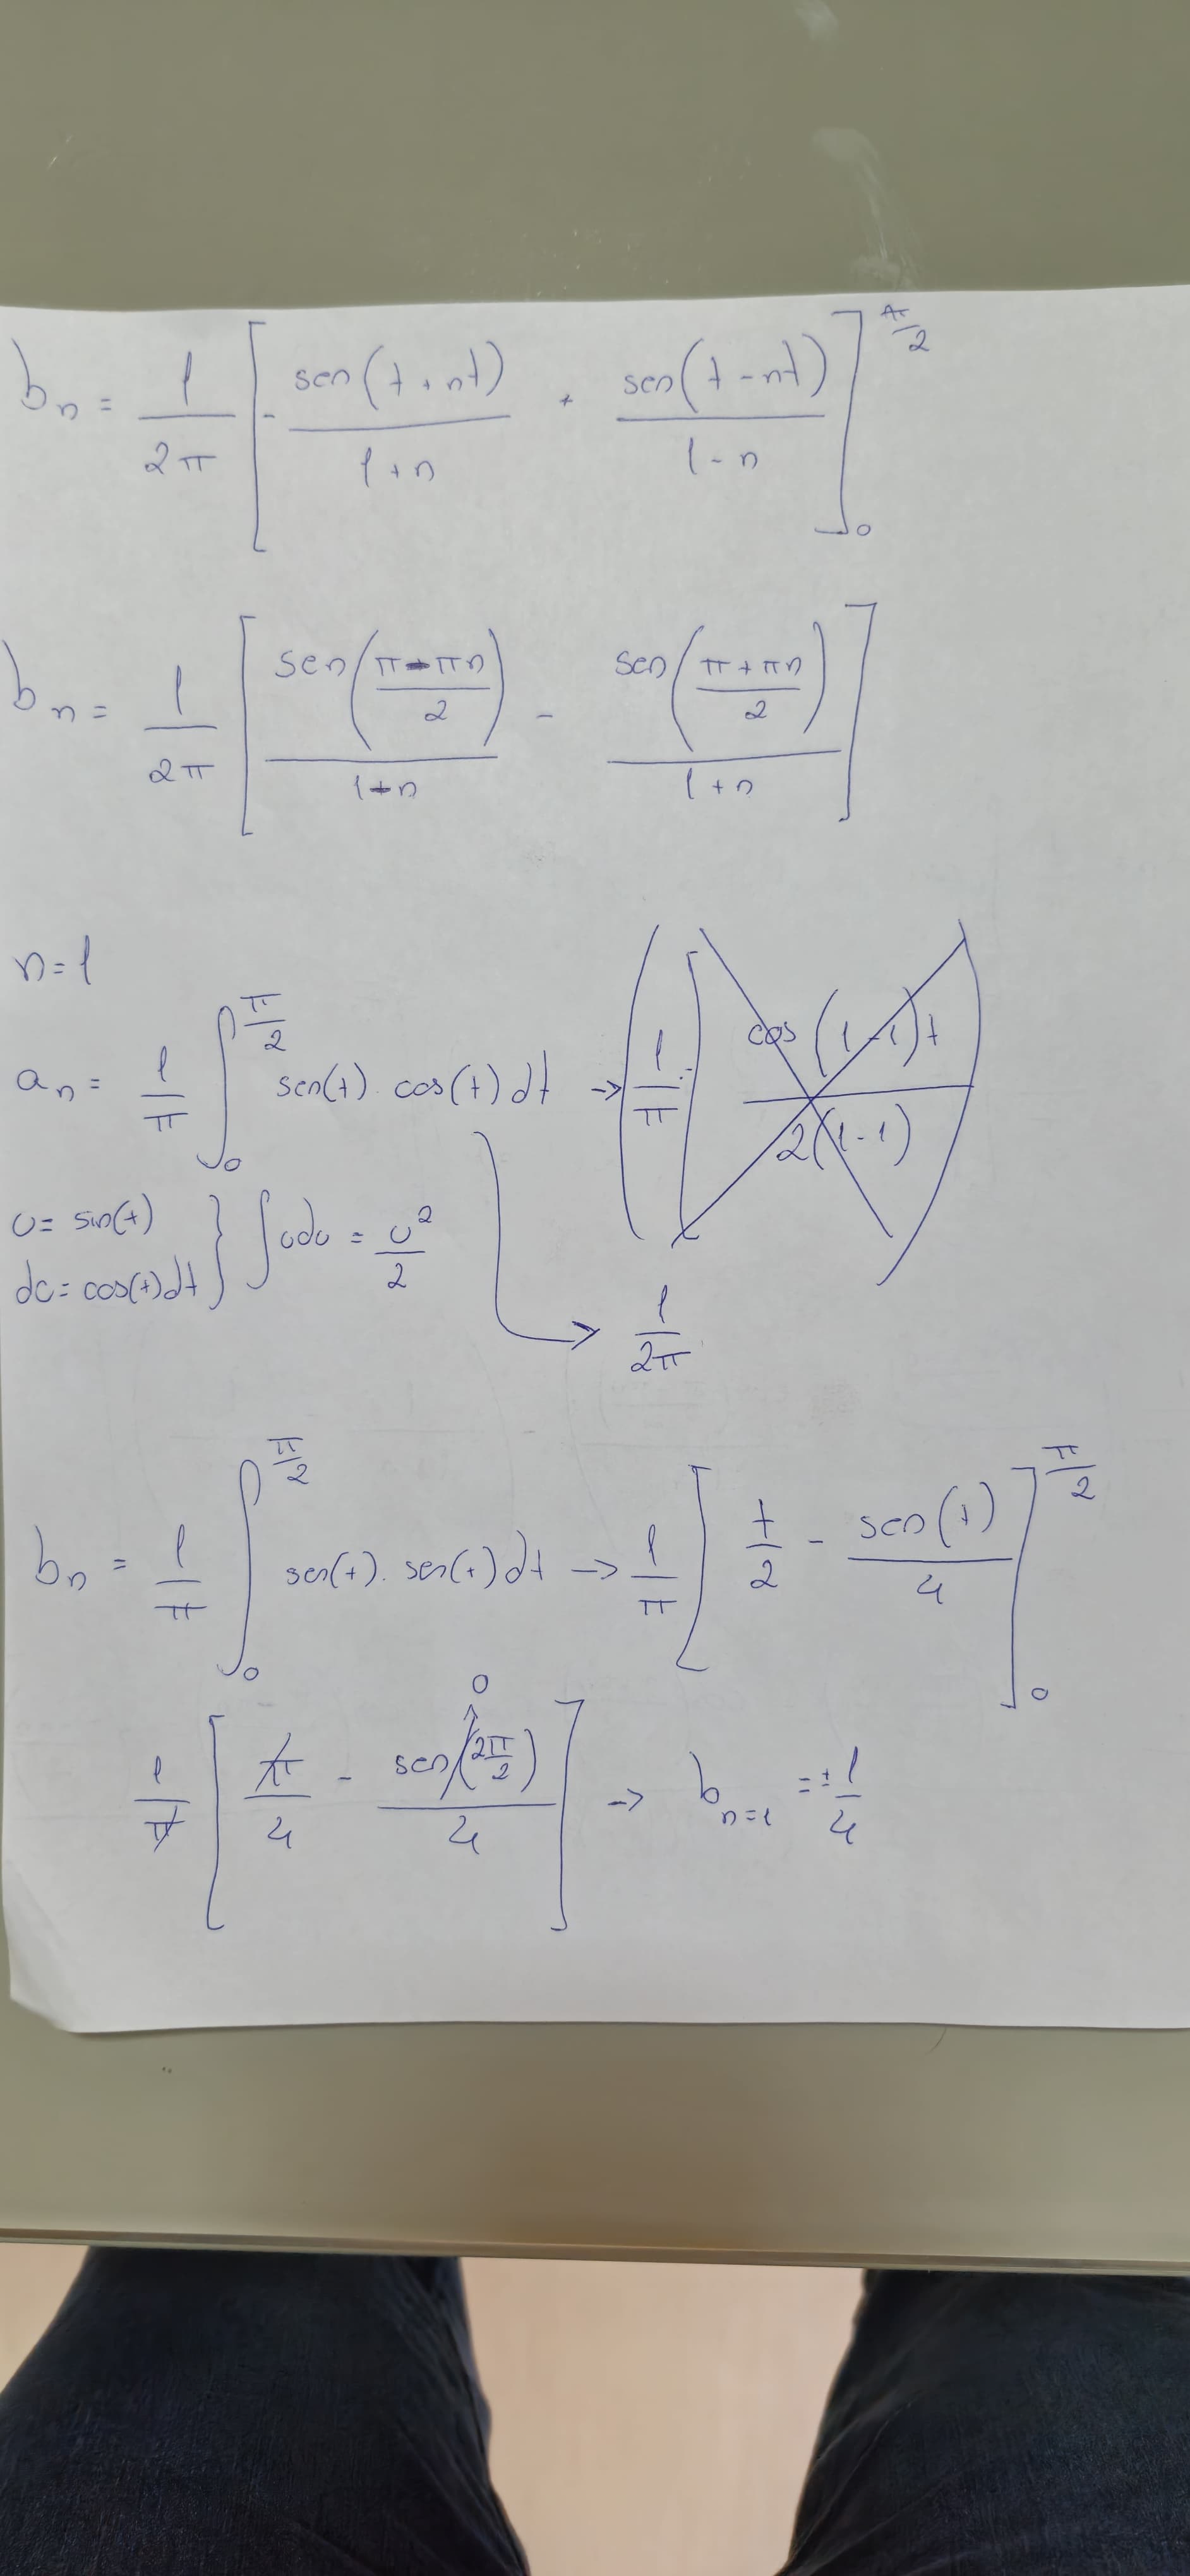 bₙ = 1/2π [ - sen(t + nt)/1 + n + sen(t - nt)/1 - n ]₀^π/2
bₙ = 1/2π [ sen(π - πn/2)/1 - n - sen(π + πn/2)/1 + n ]
n = 1
aₙ = 1/π ∫₀^π/2 sen(t) · cos(t) dt → ( 1/π [ - cos(1 - 1)t/2(1 - 1) )
u = sin(t)
du = cos(t) dt } ∫ u du = u²/2
→ 1/2π
bₙ = 1/π ∫₀^π/2 sen(t) · sen(t) dt → 1/π [ t/2 - sen(t)/4 ]₀^π/2
1/π [ π/4 - sen(2π/2)/4 ] → bₙ₌₁ = ± 1/4
0